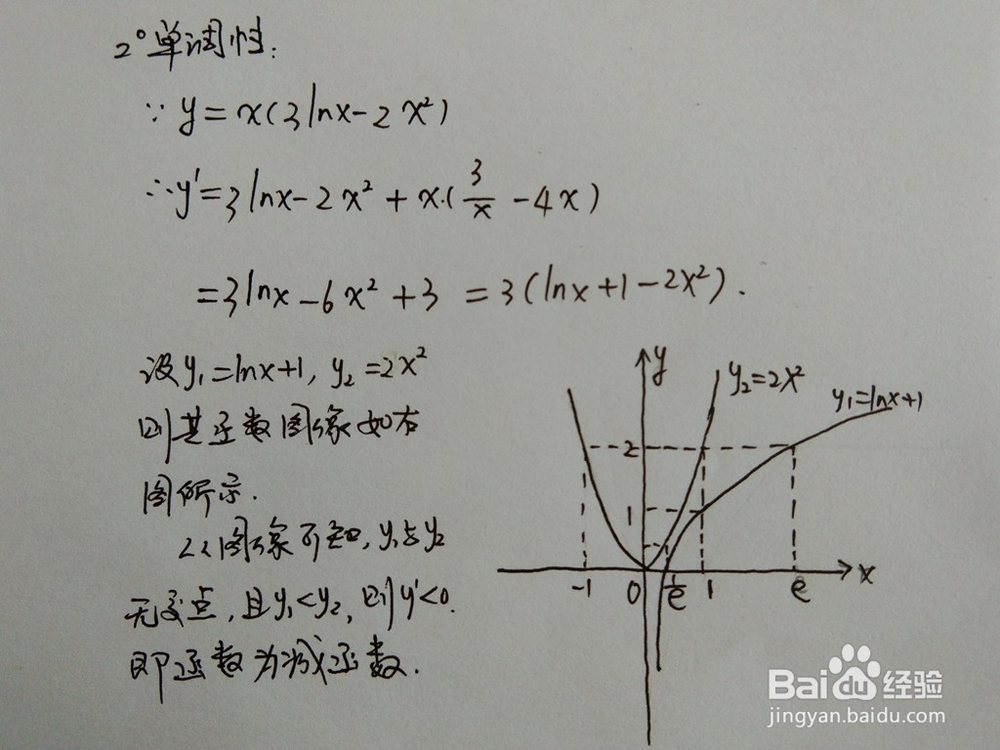 2°单调性:
∵ y=x(3lnx-2x²)
∴y'=3lnx-2x²+x·(3/x-4x)
=3lnx-6x²+3=3(lnx+1-2x²).
设y₁=lnx+1, y₂=2x²
则其函数图像如右
图所示.
从图像可知,y₁与y₂
无交点,且y₁<y₂,则y'<0.
即函数为减函数.
y
y₂=2x²
y₁=lnx+1
2
1
-1 0 1/e 1 e x
Baidu经验
jingyan.baidu.com